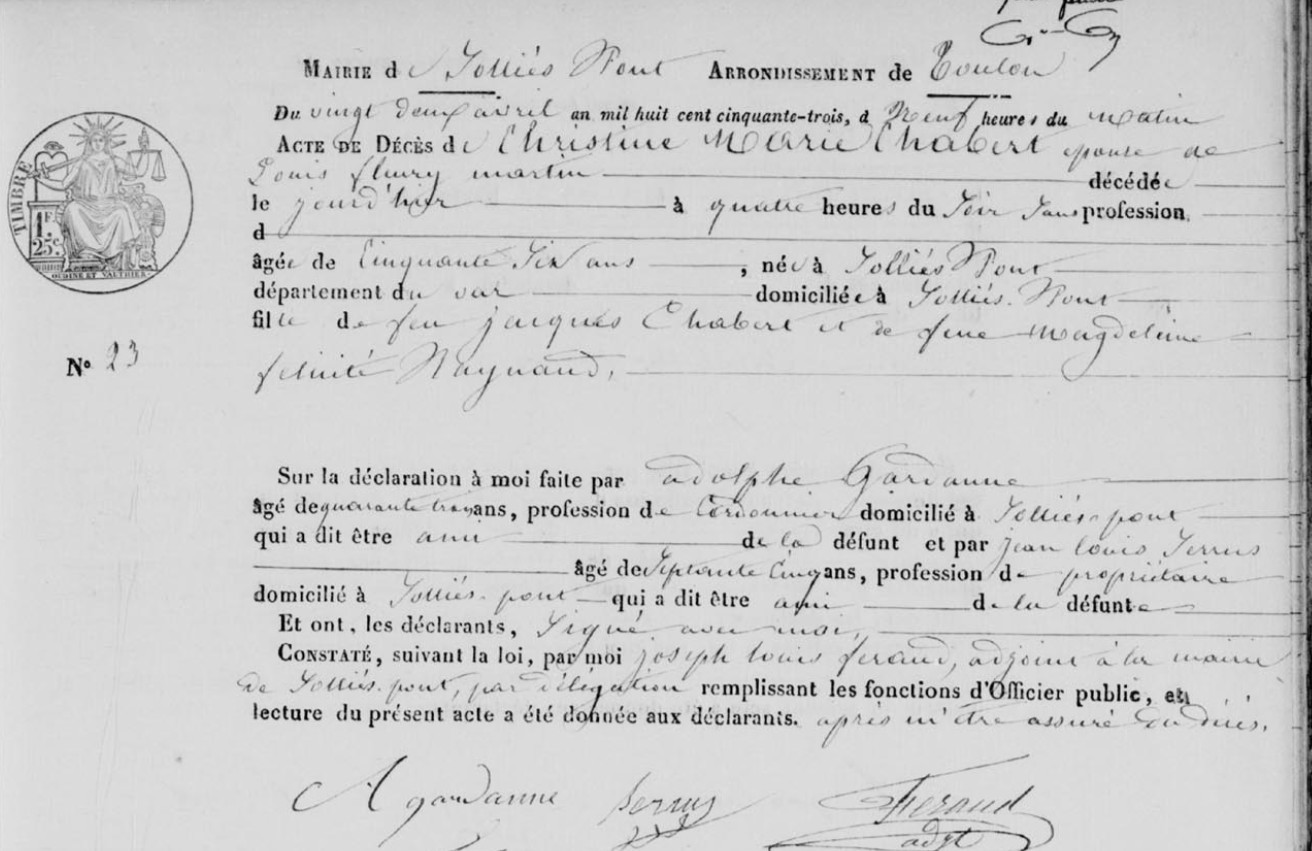 MAIRIE de Solliés Pont ARRONDISSEMENT de Toulon
Du vingt deux avril an mil huit cent cinquante-trois, à Neuf heures du Matin
ACTE DE DÉCÈS de Christine Marie Chabert epouse de
Louis fleury martin décédée
le jourd'hier à quatre heures du Soir Sans profession
d
âgée de Cinquante Six ans, née à Solliés Pont
département du var domiciliée à Solliés-Pont
fille de feu jacques Chabert et de feue Magdeleine
félicité Raynaud.
TIMBRE
1F.
25c.
OUDINÉ ET VAUTHIER
No 23
Sur la déclaration à moi faite par adolphe Gardanne
âgé de quarante trois ans, profession de Cordonnier domicilié à Solliés-pont
qui a dit être ami de la défunt et par jean louis Serrus
âgé de Septante Cinq ans, profession de propriétaire
domicilié à Solliés-pont qui a dit être ami de la défunte
Et ont, les déclarants, Signé avec moi,
CONSTATÉ, suivant la loi, par moi joseph louis feraud, adjoint à la mairie
de Solliés-pont, par délégation remplissant les fonctions d'Officier public, et
lecture du présent acte a été donnée aux déclarants. après m'être assuré du décés.
A gardanne Serrus Feraud
adjt